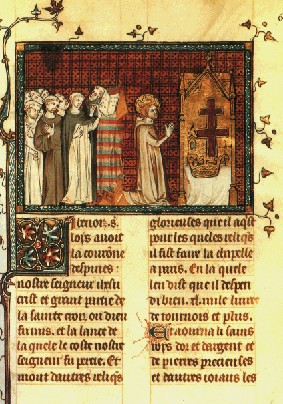 Li benois .s.
loys avoit
la couronne
despines
nostre seigneur ihesu
crist et grant partie de
la sainte croiz ou dieu
fu mis. et la lance de
la quele le coste nostre
seigneur fu percie. Et
mout dautres reliqes
glorieuses que il aqist
pour les queles reliqes
il fist faire la chapelle
a paris. En la quele
len dist que il despen
di bien .xl. mile livres
de tournois et plus.
Et aourna li sains
rois dor et dargent et
de pierres precieuses
et dautres ioiaus les